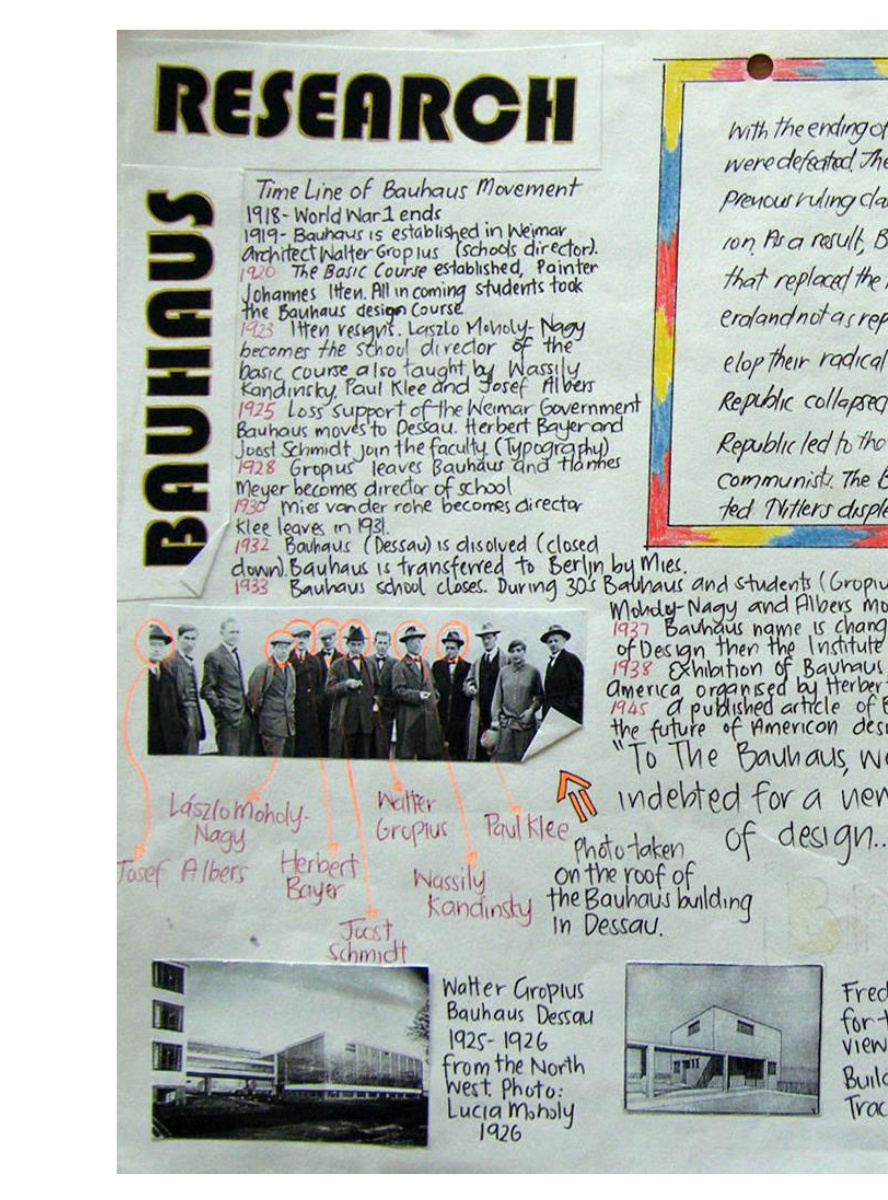 RESEARCH
BAUHAUS
Time Line of Bauhaus Movement
1918- World War 1 ends
1919- Bauhaus is established in Weimar
Architect Walter Gropius (schools director).
1920 The Basic Course established, Painter
Johannes Itten. All in coming students took
the Bauhaus design Course
1923 Itten resigns. Laszlo Moholy-Nagy
becomes the school director of the
basic course also taught by Wassily
Kandinsky, Paul Klee and Josef Albers
1925 Loss support of the Weimar Government
Bauhaus moves to Dessau. Herbert Bayer and
Joost Schmidt join the faculty (Typography)
1928 Gropius leaves Bauhaus and Hannes
Meyer becomes director of school
1930 Mies van der rohe becomes director
Klee leaves in 1931.
1932 Bauhaus (Dessau) is disolved (closed
down). Bauhaus is transferred to Berlin by Mies.
1933 Bauhaus school closes. During 30's Bauhaus and students (Gropiu
Moholy-Nagy and Albers mo
1937 Bauhaus name is chang
of Design then the Institute
1938 Exhibition of Bauhaus
America organised by Herbert
1945 a published article of
the future of American desi
"To The Bauhaus, we
indebted for a new
of design..
With the ending of
were defeated. The
Previous ruling cla
ion. As a result, B
that replaced the
eral and not as rep
elop their radical
Republic collapsed
Republic led to tho
communists. The
ted Hitlers disple
László Moholy-
Nagy
Josef Albers
Herbert
Bayer
Joost
Schmidt
Walter
Gropius
Wassily
Kandinsky
Paul Klee
Photo taken
on the roof of
the Bauhaus building
in Dessau.
Walter Gropius
Bauhaus Dessau
1925-1926
from the North
West. Photo:
Lucia Moholy
1926
Fred
for t
view
Build
Trac